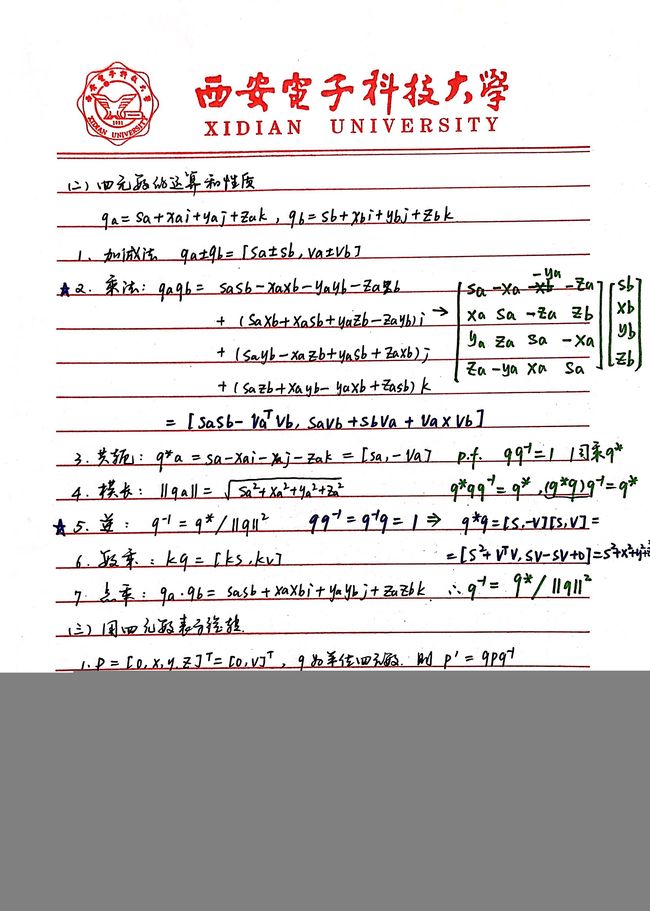 西安電子科技大學
XIDIAN UNIVERSITY
(二) 四元数的运算和性质
qa = sa + xai + yaj + zak , qb = sb + xbi + ybj + zbk
1. 加减法 qa±qb = [sa±sb, va±vb]
★2. 乘法: qaqb = sasb - xaxb - yayb - zazb
+ (saxb + xasb + yazb - zayb)i →
+ (sayb - xazb + yasb + zaxb)j
+ (sazb + xayb - yaxb + zasb)k
= [sasb - vaᵀvb, savb + sbva + va×vb]
-ya
[sa -xa -xb -za] [sb]
[xa sa -za zb] [xb]
[ya za sa -xa] [yb]
[za -ya xa sa] [zb]
3. 共轭: q*a = sa - xai - xaj - zak = [sa, -va] p.f. qq⁻¹ = 1 同乘q*
4. 模长: ||qa|| = √(sa²+xa²+ya²+za²) q*qq⁻¹ = q*, (q*q)q⁻¹ = q*
★5. 逆: q⁻¹ = q*/||q||² qq⁻¹ = q⁻¹q = 1 ⇒ q*q = [s,-v][s,v] =
6. 数乘: kq = [ks, kv] = [s²+vᵀv, sv-sv+0] = s²+x²+y²+z²
7. 点乘: qa·qb = sasb + xaxbi + yaybj + zazbk ∴ q⁻¹ = q*/||q||²
(三) 用四元数表示旋转
1. P = [0, x, y, z]ᵀ = [0, v]ᵀ , q为单位四元数. 则 p' = qpq⁻¹